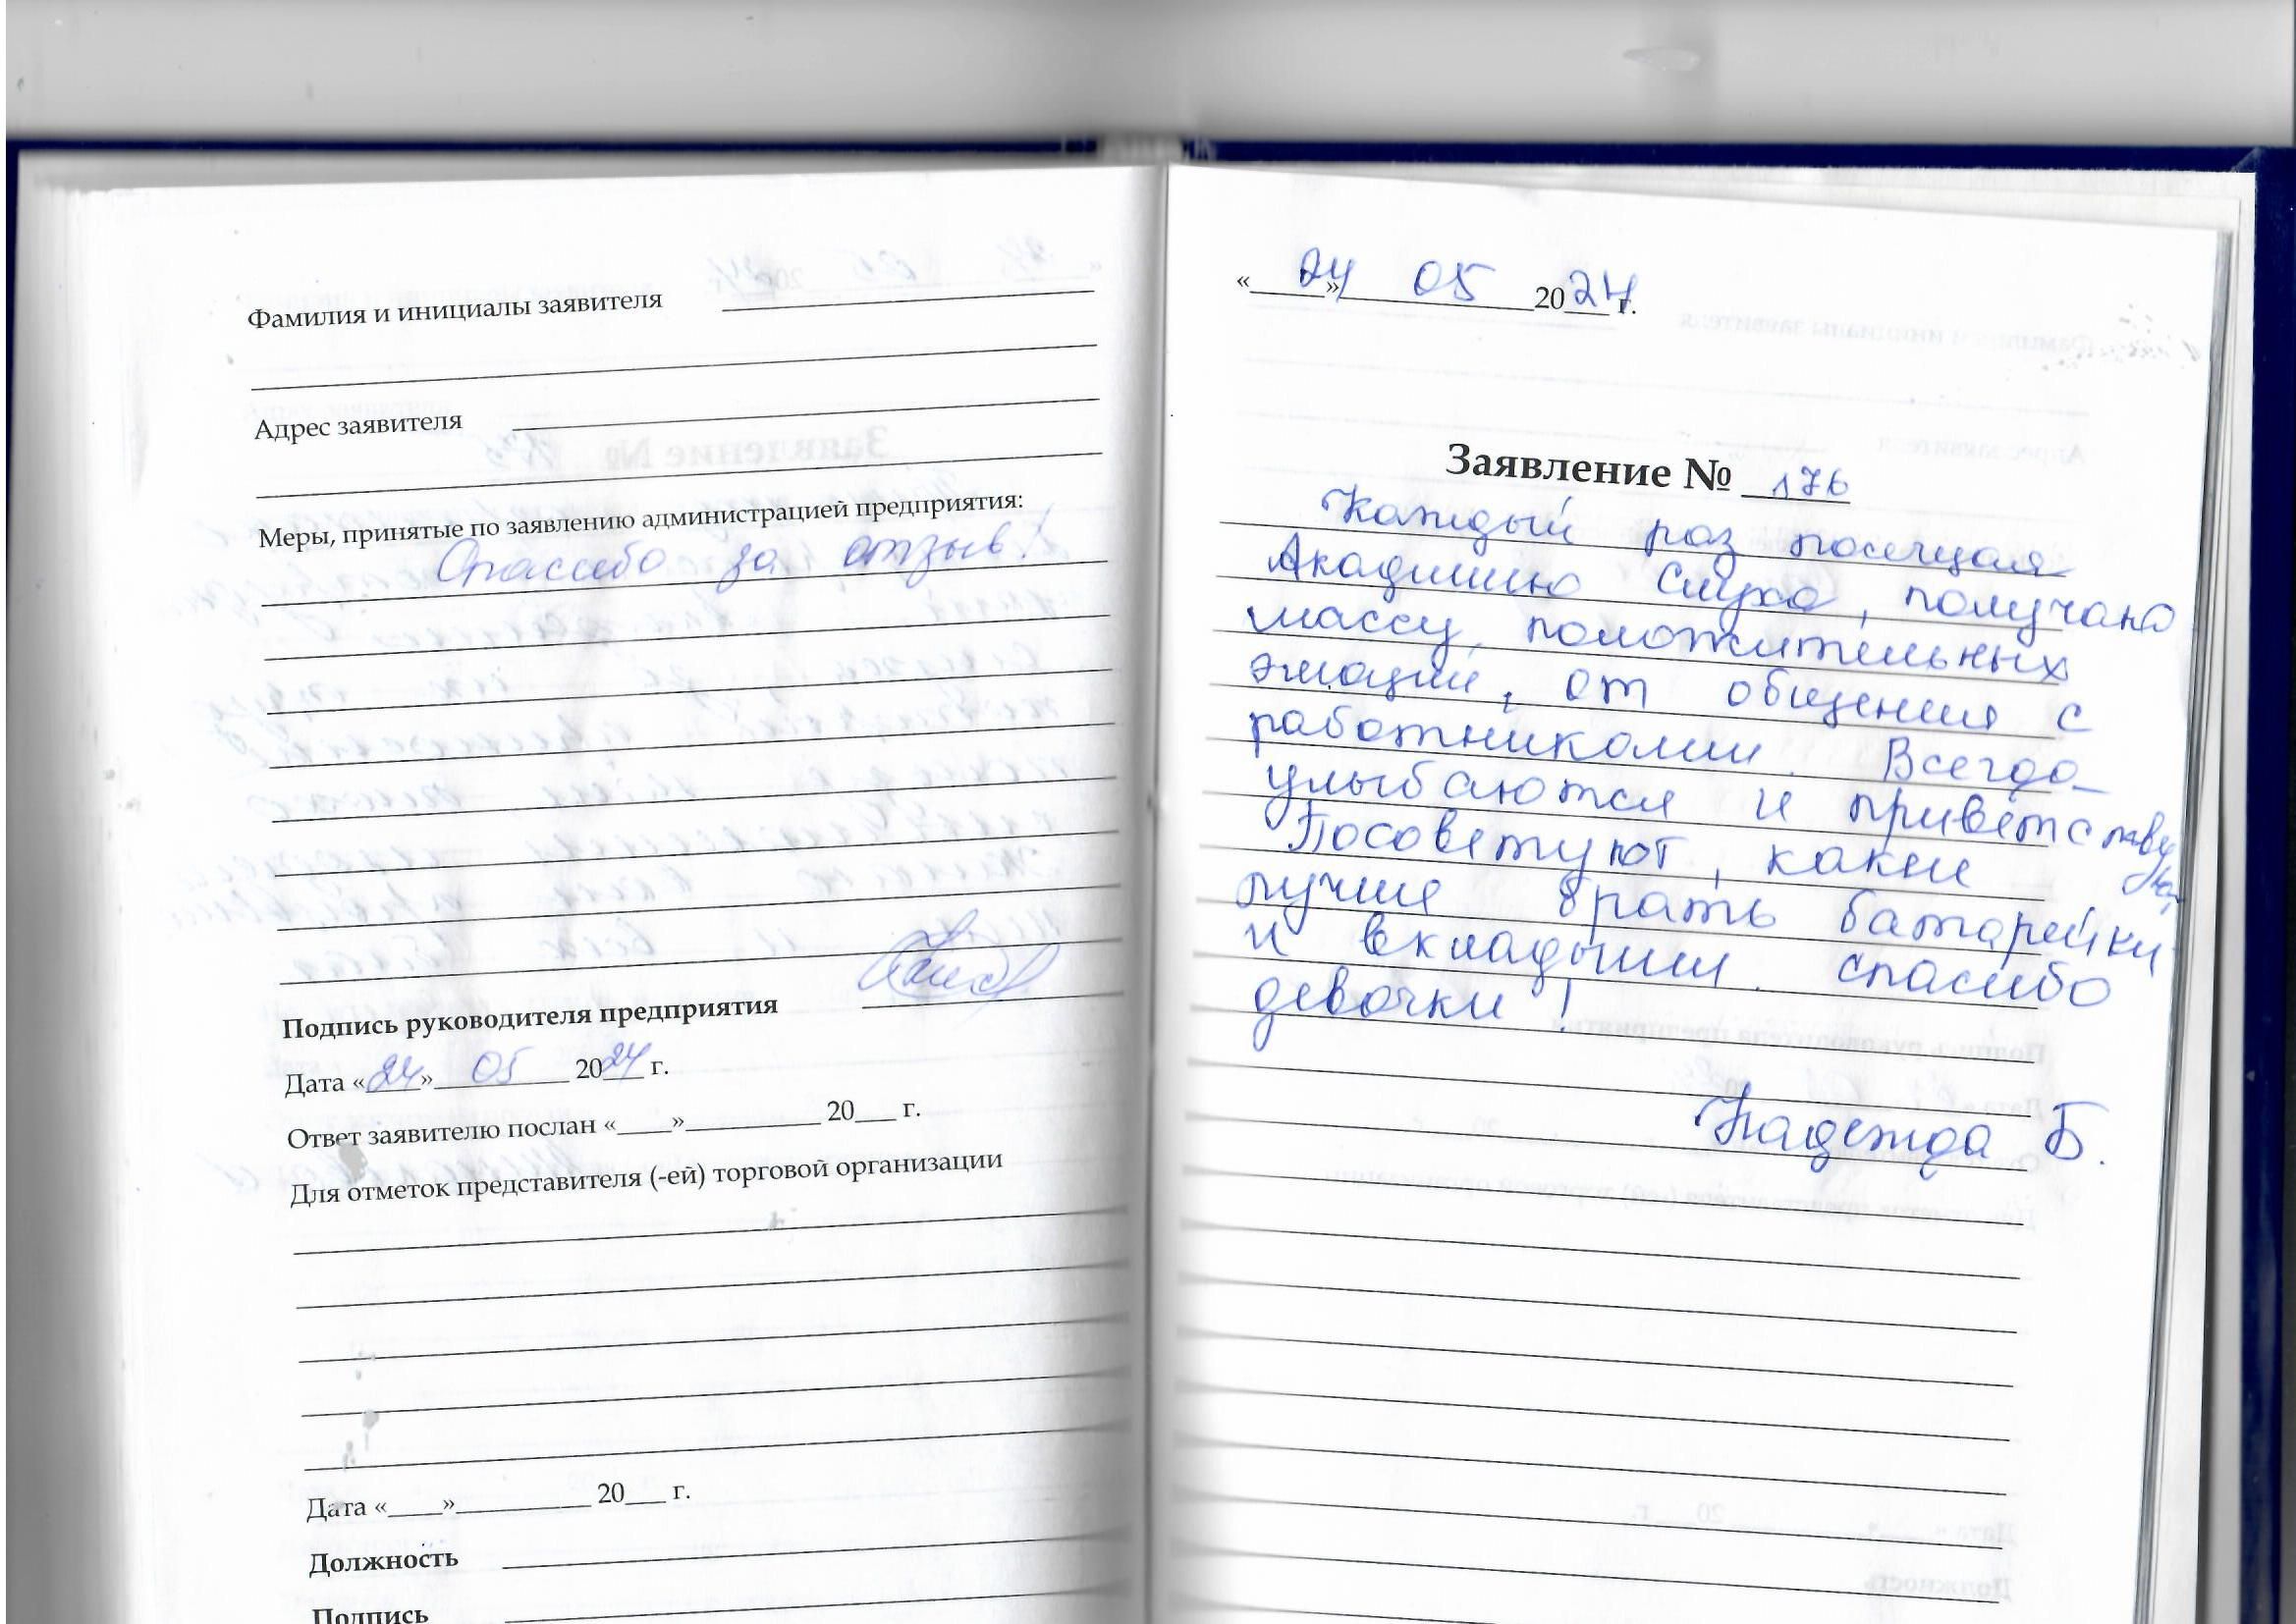 Фамилия и инициалы заявителя
Адрес заявителя
Меры, принятые по заявлению администрацией предприятия:
Спасибо за отзыв!
Подпись руководителя предприятия
Дата «24» 05 2024 г.
Ответ заявителю послан «____»__________ 20___ г.
Для отметок представителя (-ей) торговой организации
Дата «____»__________ 20___ г.
Должность
Подпись
«24» 05 2024 г.
Заявление № 176
Каждый раз посещая
Академию Слуха, получаю
массу положительных
эмоций, от общения с
работниками. Всегда
улыбаются и приветствуют
Посоветуют, какие
лучше брать батарейки
и вкладыши. спасибо
девочки!
Надежда Б.